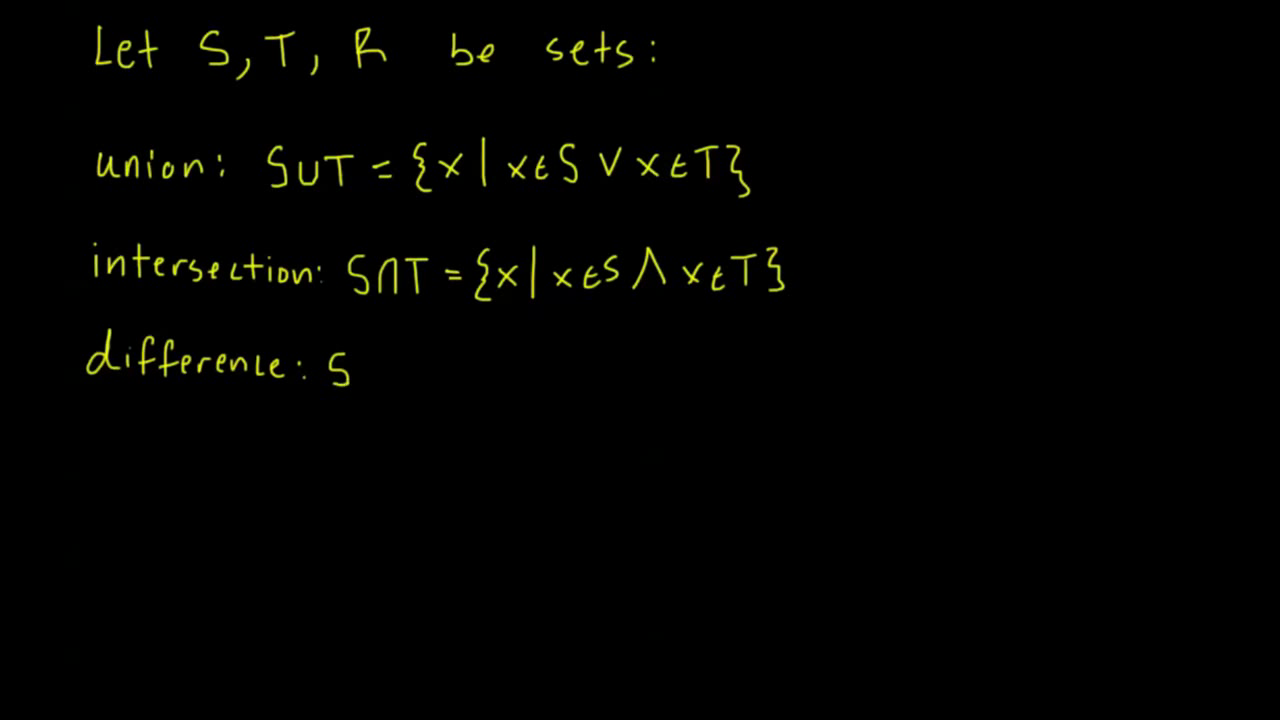 Let S, T, R be sets:
union: S∪T = {x | x∈S ∨ x∈T}
intersection: S∩T = {x | x∈S ∧ x∈T}
difference: S